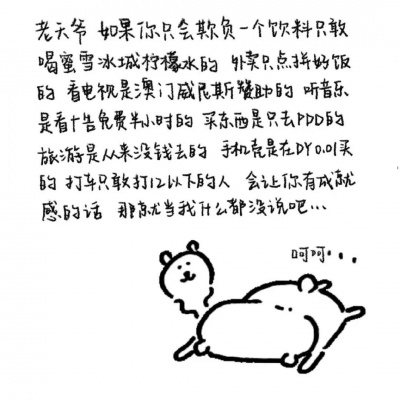 老天爷 如果你只会欺负一个饮料只敢
喝蜜雪冰城柠檬水的 外卖只点拼好饭
的 看电视是澳门威尼斯赞助的 听音乐
是看广告免费半小时的 买东西是只去PDD的
旅游是从来没钱去的 手机壳是在DY0.01买
的 打车只敢打12以下的人 会让你有成就
感的话 那就当我什么都没说吧...
呵呵...